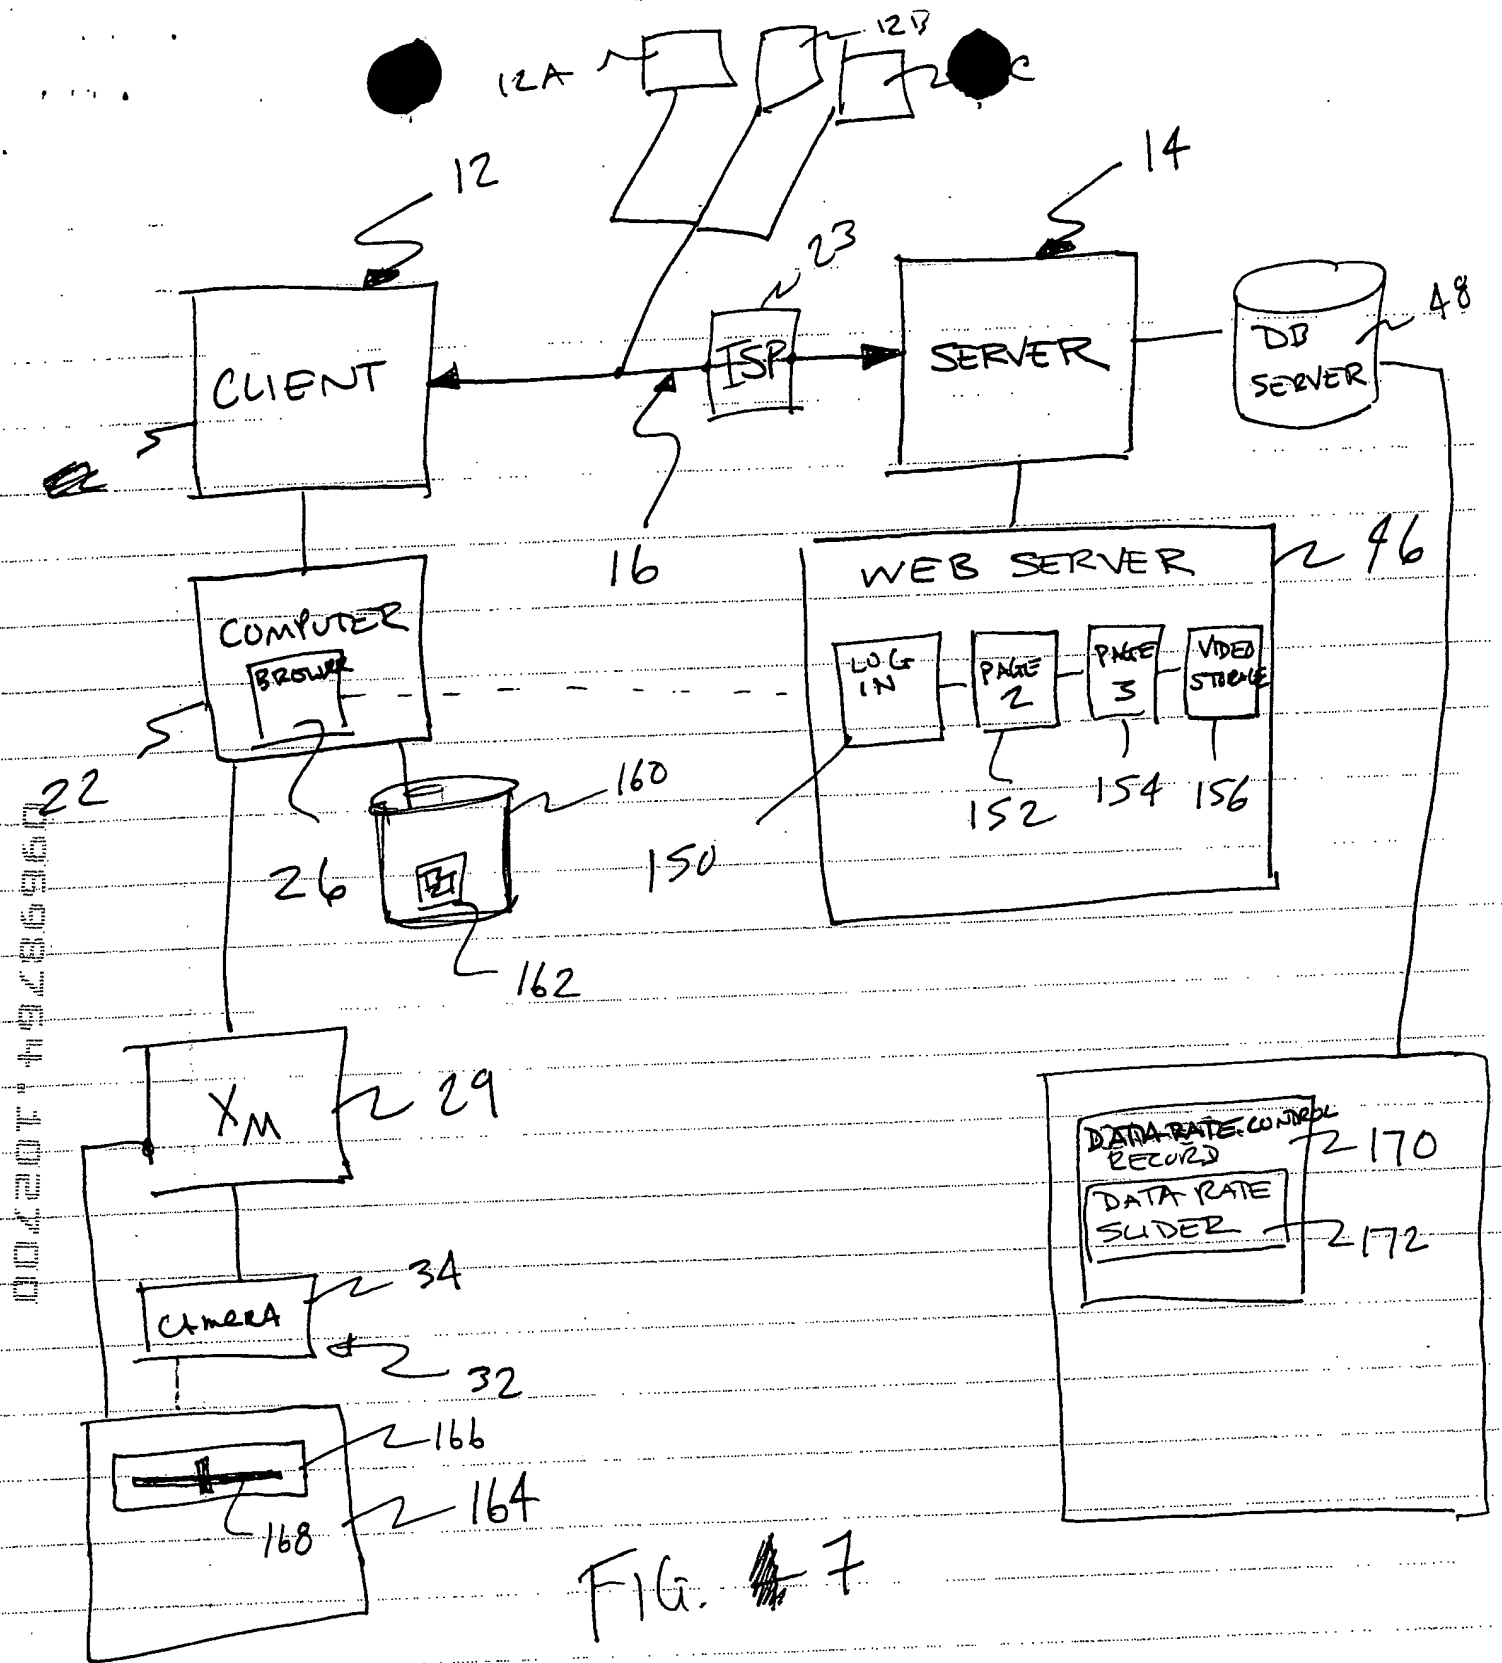 12A
12B
C
12
14
23
48
CLIENT
ISP
SERVER
DB
SERVER
16
WEB SERVER
46
COMPUTER
LOG
IN
PAGE
2
PAGE
3
VIDEO
STORAGE
22
26
160
150
152
154
156
162
XM
29
DATA RATE CONTROL
RECORD
170
DATA RATE
SLIDER
172
34
CAMERA
32
166
168
164
FIG. 7